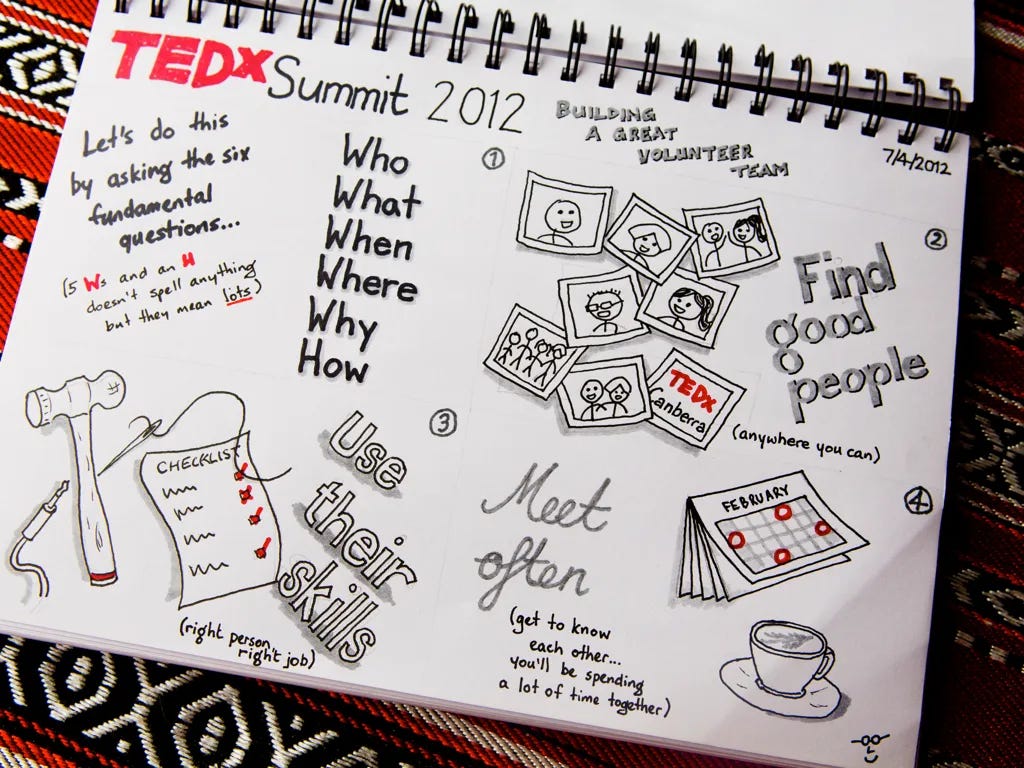 TEDx Summit 2012
BUILDING
A GREAT
VOLUNTEER
TEAM
7/4/2012
Let's do this
by asking the six
fundamental
questions...
(5 Ws and an H
doesn't spell anything
but they mean lots)
1
Who
What
When
Where
Why
How
2
Find
good
people
(anywhere you can)
TEDx
Canberra
3
Use
their
skills
CHECKLIST
(right person,
right job)
4
Meet
often
(get to know
each other...
you'll be spending
a lot of time together)
FEBRUARY